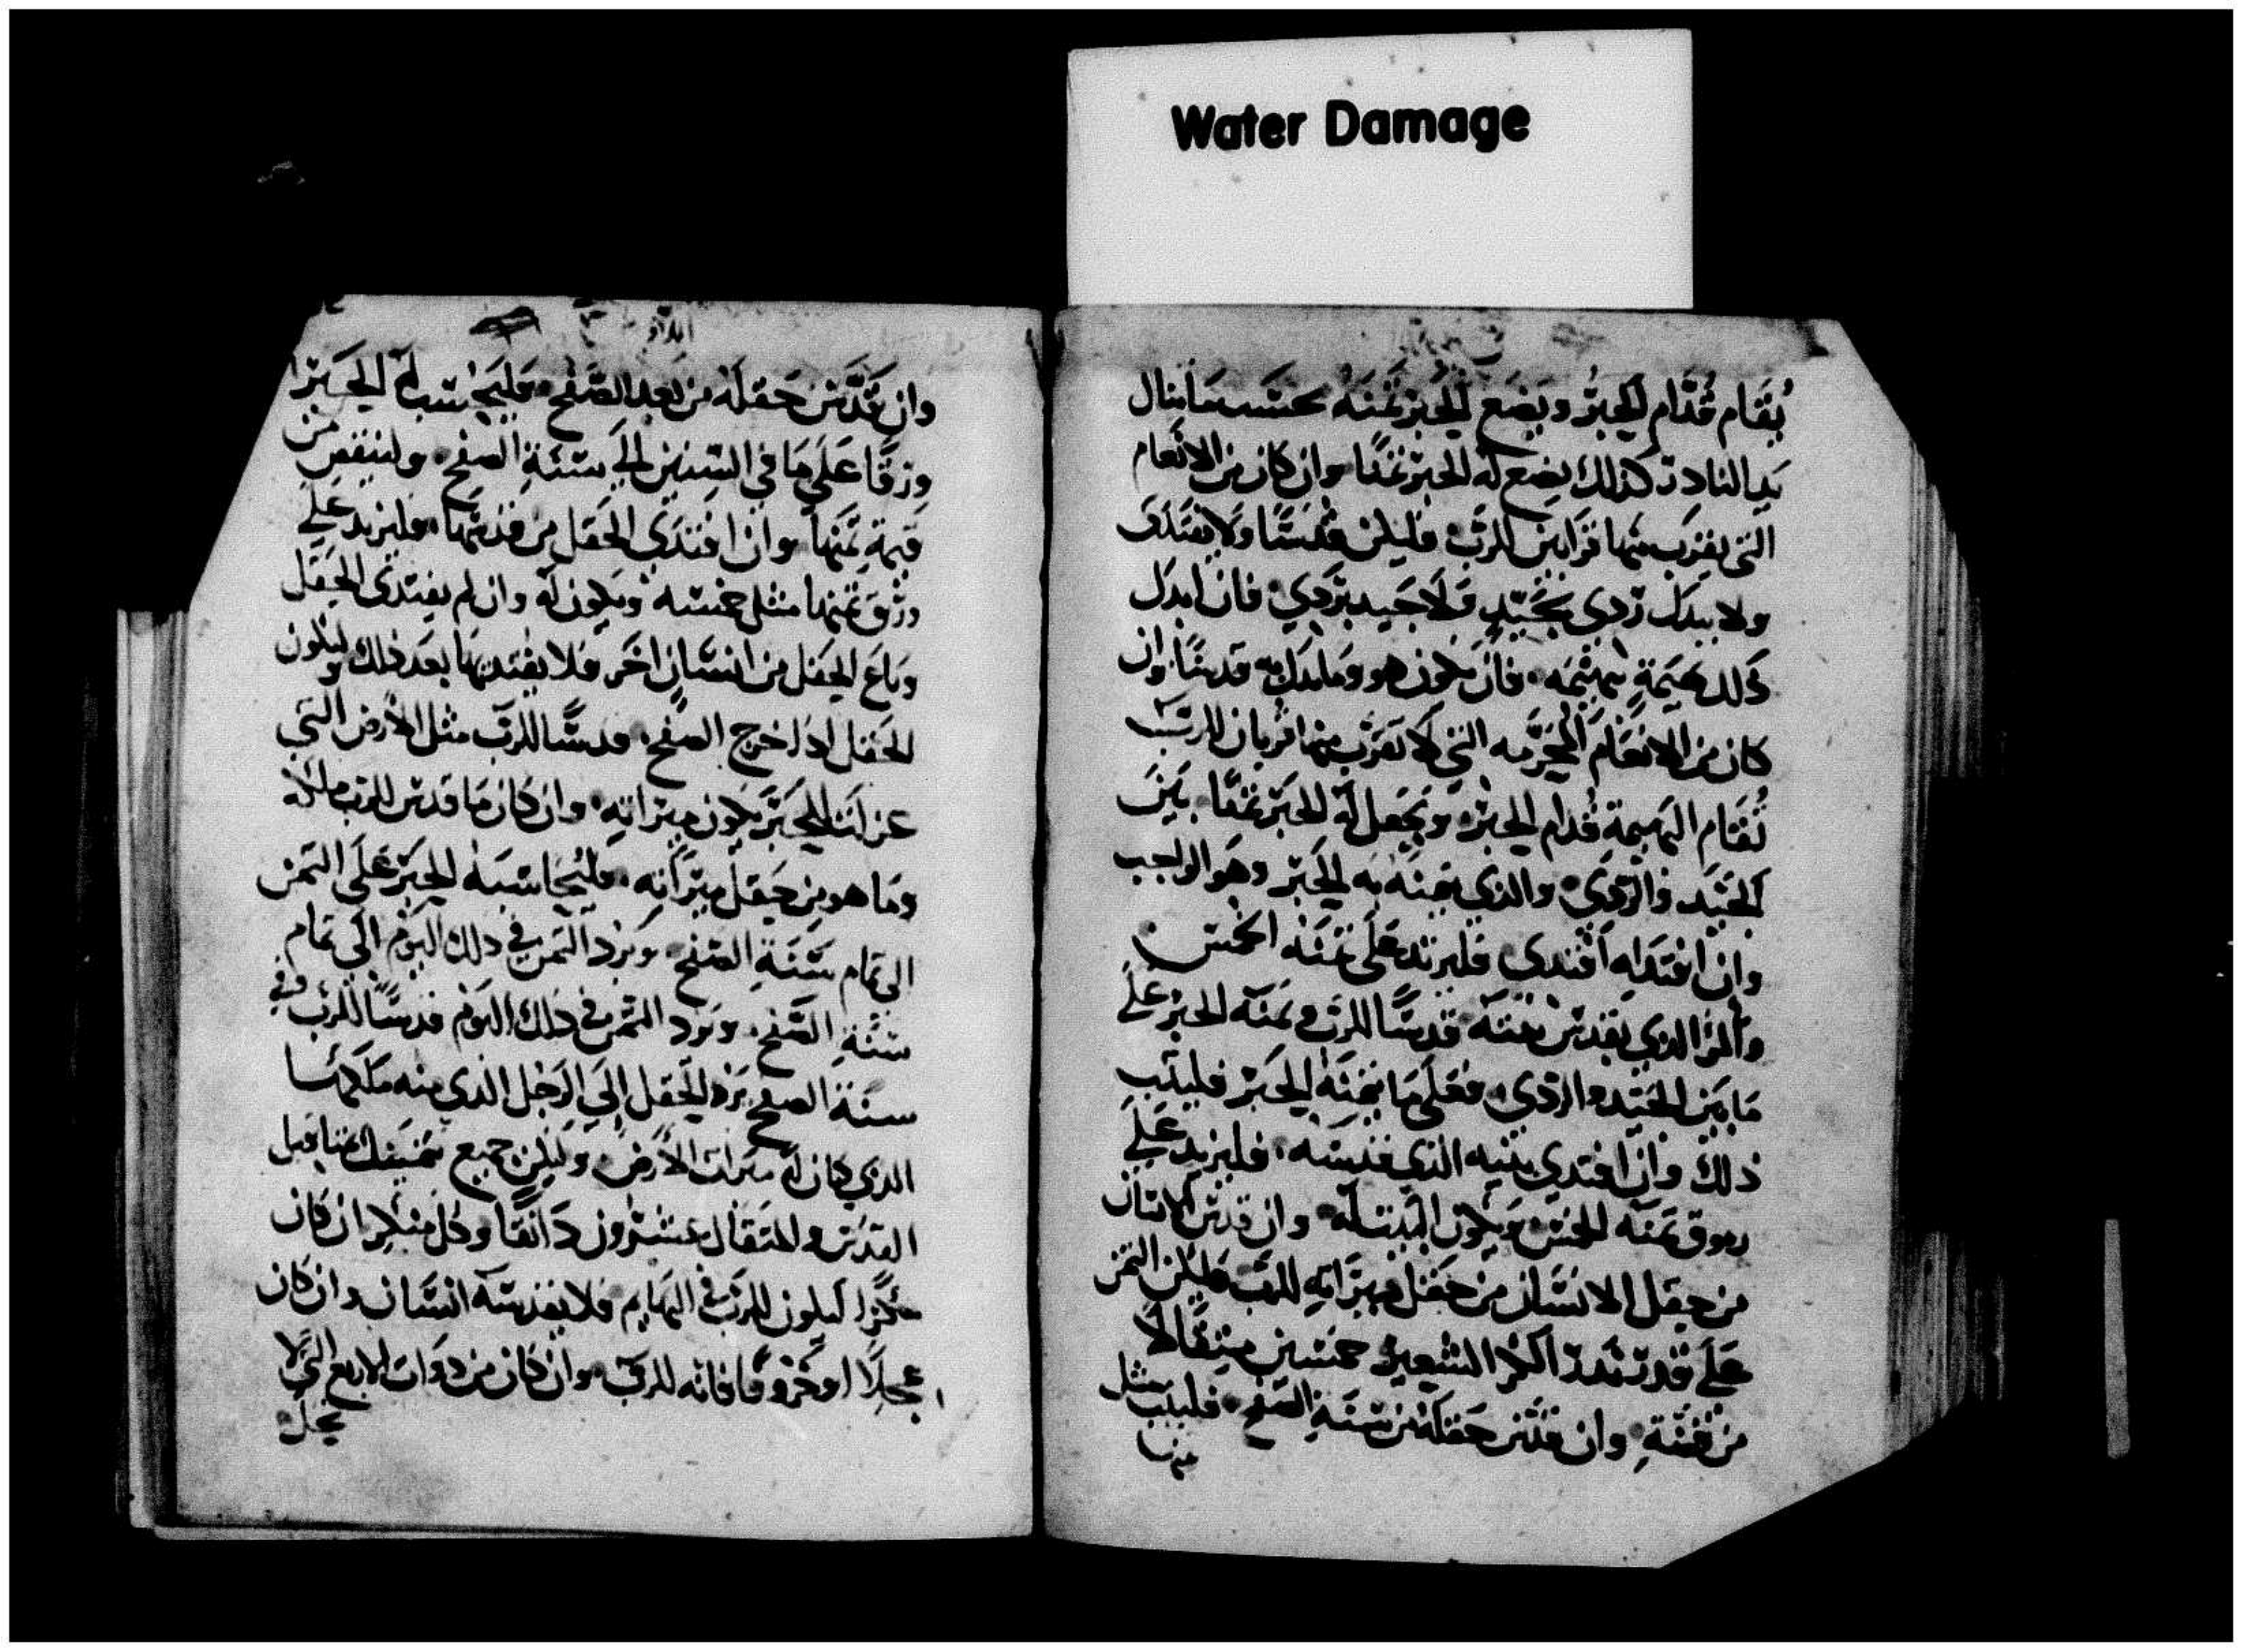 Water Damage
يُقام قُدّام الحِبرُ ويَضَع الحَبرثمنَهُ حسَب مَا ينال
يَد الناذر كذلك يضع له الحبر ثمنًا وان كان من الانعام
التي يقرَب منها قرابين للرَب فليكن قدسًا ولا يفتدى
ولا يبدَل ردي بجَيّدٍ ولَا جَيد بردي فان ابدَل
بَهيمَةٍ ببهيمَه فان يكون هو وما بدَل به قدسًا وان
كان من الانعَام المحَرّمه التي لَا تقرَب منها قربان للرَب
تُقام البهيمة قُدام الحبر ويجعَل له الحَبر ثمنًا بَينَ
الجَيّد والرَدي والذي يثمنَه به الحَبر وهَو الواجب
وان افتداه افتدي فليزيد عَلى ثمنَه الخمس
والمرء الذي يقدس بيته قدسًا للرب وثمنَه الحبر عَلى
مَا بَين الجَيّد والردي فعَلى مَا يثمنَه الحَبر فليثبت
ذلك وان افتدي بيته الذي قدسَه فليزيد عَلى
ورق ثمنَه الخمس ويكون البيت له وان قدس انسَان
من حقل الانسَان من حقل ميراثِه للرَب فليكن الثمن
عَلى قدر بَدر اكرار الشعير خمسين مثقالًا
من فضّةٍ وان قدّس حَقله من سنَةِ الصفح فليثبت مثل
منها
وان قَدَّس حَقلَه من بَعد الصَفح فليَحسب له الحَبر
ورقًا عَلى مَا في السنين الى سَنَةِ الصفح ولينقص من
قيمةِ ثمَنها وان افتدَي الحَقل من قدسَها فليزيد عَلى
ورَق ثمنها مثل خمسه ويكون له وان لم يفتدى الحَقل
وبَاعَ الحَقل من انسَانٍ اخَر فلا يفتديها بعَد ذلك وليكون
الحَقل اذا خرج الصفح قدسًا للرب مثل الأرض التي
عزلت للحَبر يكون ميراثهِ وان كان مَا قدس للرب مَا ملكه
ومَا هو من حَقل ميرَاثه فليُحَاسبَهُ الحَبر عَلَى الثمن
الي تمام سَنَةِ الصَفح ويرد الثمن في ذلك اليوم الى تمام
سَنَةِ الصَفح ويَرد الثمن في ذلك اليَوم قدسًا للرَب وفي
سنَة الصفح يَرد الحَقل الي الرَجل الذي منه ملكهَا
الذي كان له ميراث الأرض وليكن جميع ثمنك بمثاقيل
القدس والمثقال عشرون دَانقًا وكل بكرا ان كان
بكرًا ليكون للرَب في البهايم فلا يقدسَه انسَان وان كان
عجلًا او خروفًا فانه للرَب وان كان من ذوات الاربع التي لا
تحل